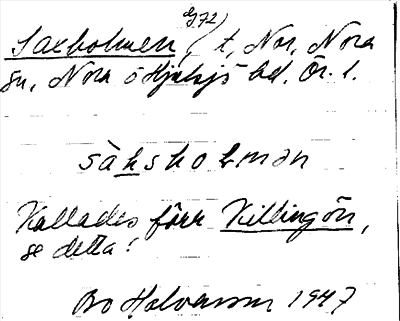 G72)
Saxholmen, t, Nor, Nora
sn, Nora o Hjulsjö bd, Ör. l.
sàksholmən
Kallades förr Killingön,
se detta!
Bo Halvarson 1947